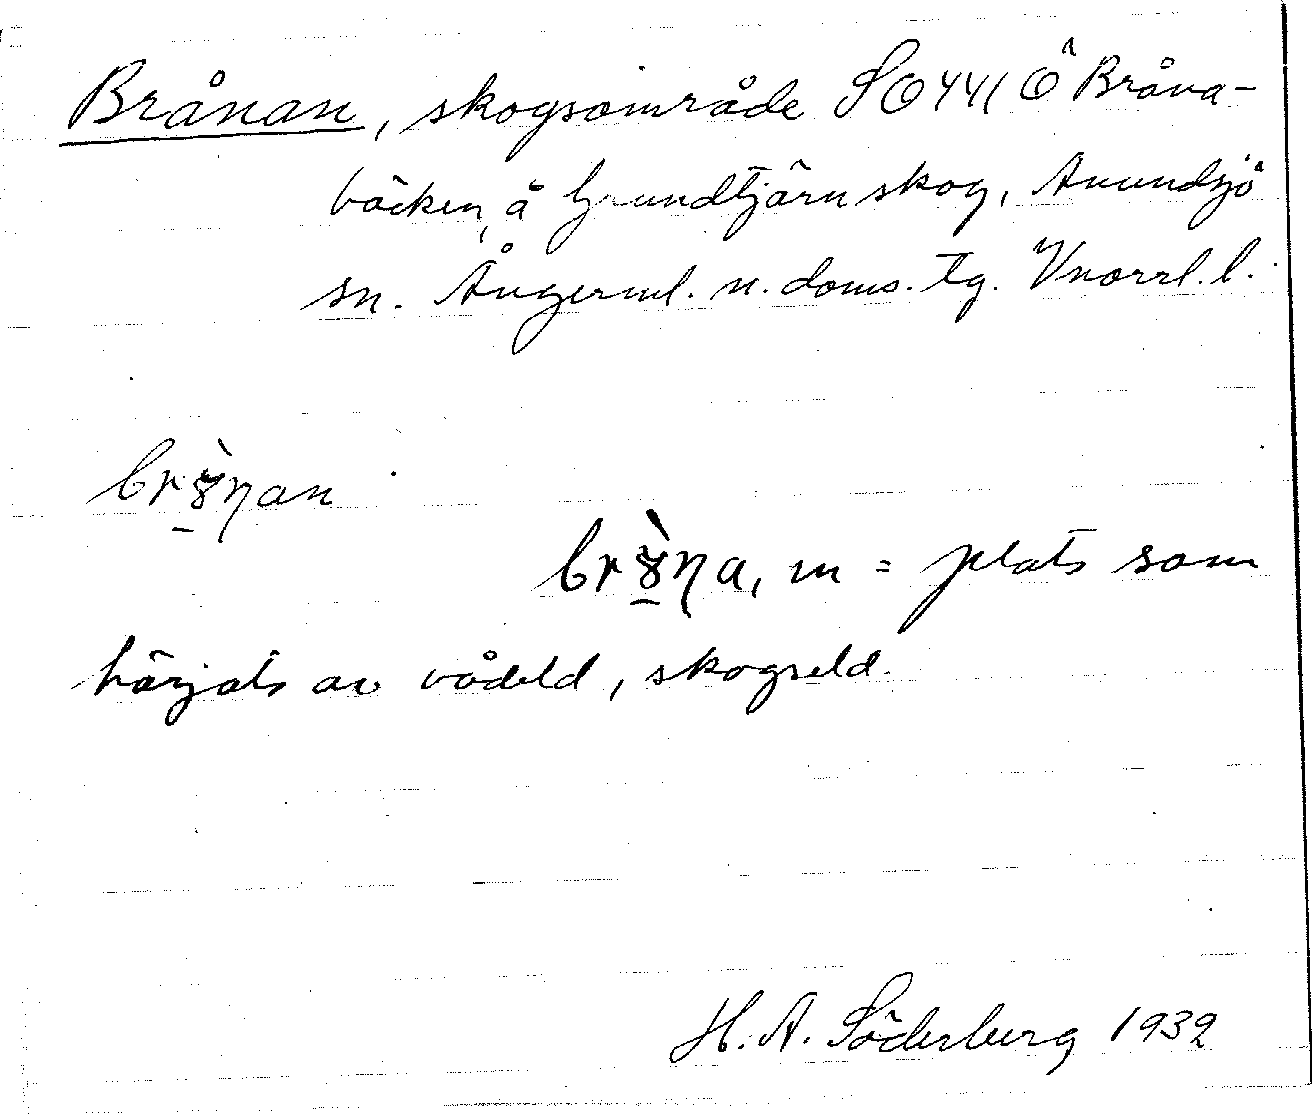 Brånan, skogsområde SO 441 Ö Bråna-
bäcken, å Grundtjärn skog, Anundsjö
sn. Ångerml. n. doms. tg. Vnorrl. l.
br&#x0324;
härjats av vådeld, skogseld.
H. A. Söderberg 1932